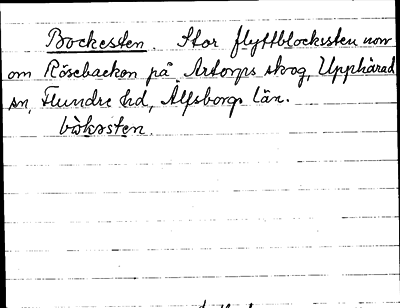 Bockesten. Stor flyttblockssten norr
om Rösebacken på Artorps skog, Upphärad
sn, Flundre hd, Älfsborgs län.
båkssten.